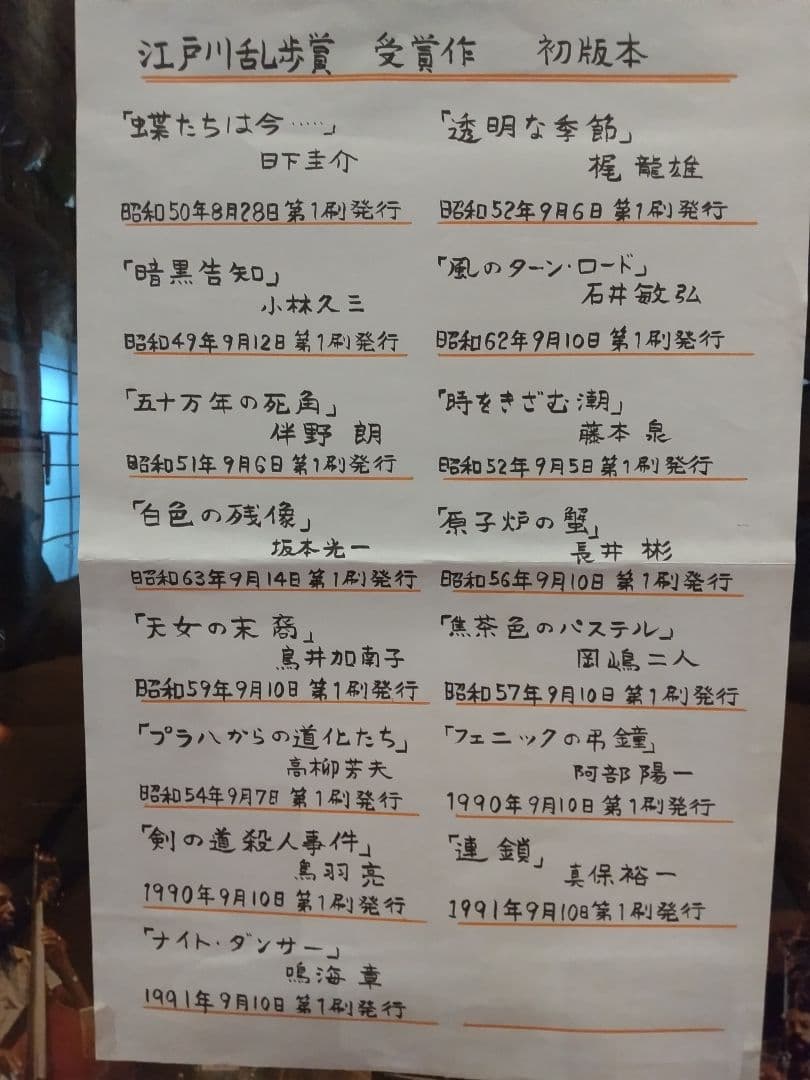 江戸川乱歩賞 受賞作 初版本
「蝶たちは今……」
日下圭介
昭和50年8月28日第1刷発行
「暗黒告知」
小林久三
昭和49年9月12日第1刷発行
「五十万年の死角」
伴野 朗
昭和51年9月6日第1刷発行
「白色の残像」
坂本光一
昭和63年9月14日第1刷発行
「天女の末裔」
鳥井加南子
昭和59年9月10日第1刷発行
「プラハからの道化たち」
高柳芳夫
昭和54年9月7日第1刷発行
「剣の道殺人事件」
鳥羽 亮
1990年9月10日第1刷発行
「ナイト・ダンサー」
鳴海 章
1991年9月10日第1刷発行
「透明な季節」
梶 龍雄
昭和52年9月6日第1刷発行
「風のターン・ロード」
石井敏弘
昭和62年9月10日第1刷発行
「時をきざむ潮」
藤本 泉
昭和52年9月5日第1刷発行
「原子炉の蟹」
長井 彬
昭和56年9月10日第1刷発行
「焦茶色のパステル」
岡嶋二人
昭和57年9月10日第1刷発行
「フェニックの弔鐘」
阿部陽一
1990年9月10日第1刷発行
「連鎖」
真保裕一
1991年9月10日第1刷発行